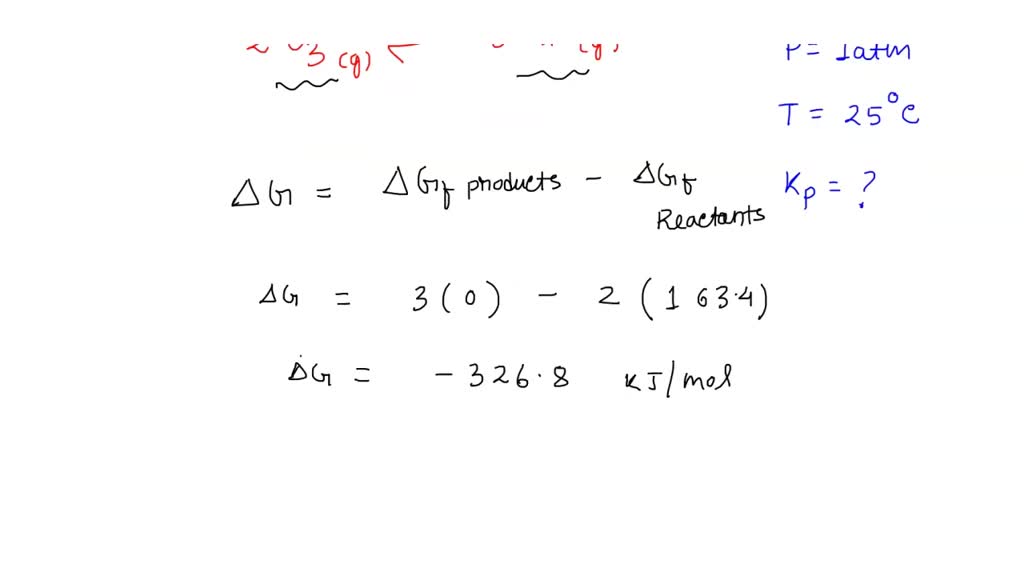 3 (g)
(g)
P = 1atm
T = 25°C
ΔG = ΔGf products - ΔGf Reactants
Kp = ?
ΔG = 3(0) - 2(163.4)
ΔG = -326.8 KJ/mol